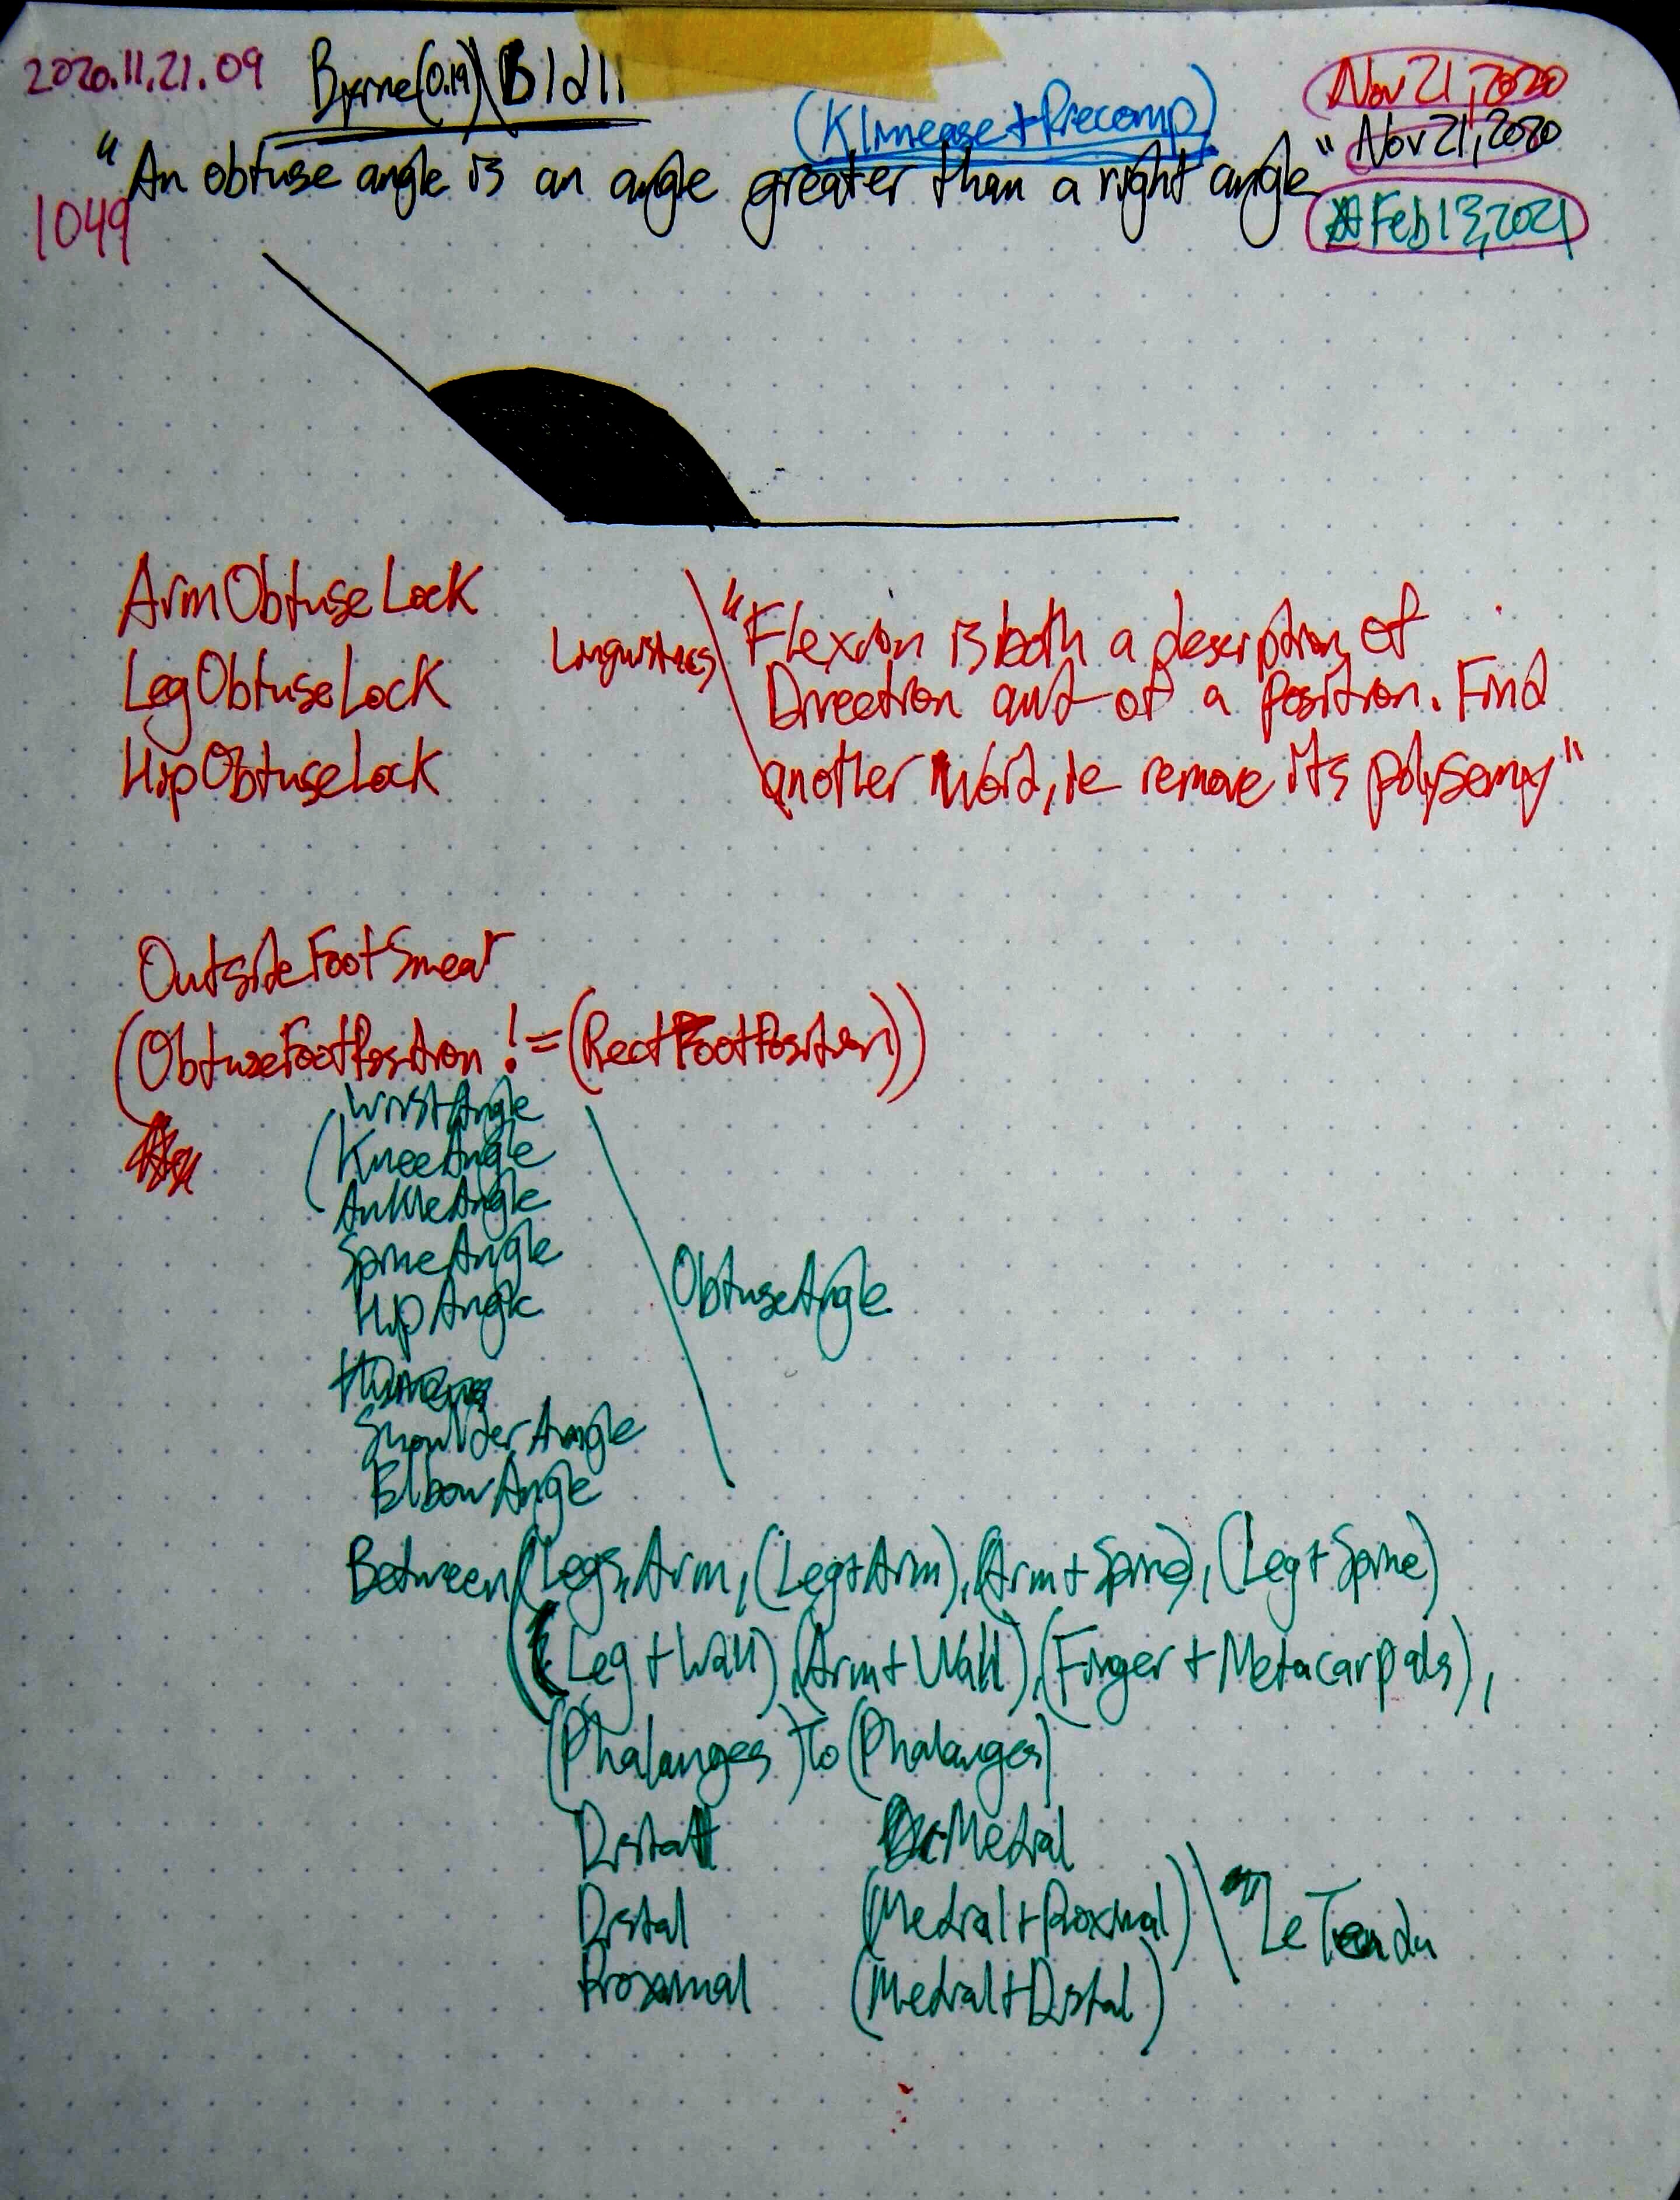 2020.11.21.09
Byrne(0.19)\Bldl
(Klinease+Precomp)
Nov 21, 2020
Nov 21, 2020
Feb 13, 2021
"An obtuse angle is an angle greater than a right angle"
1049
ArmObtuseLock
LegObtuseLock
HipObtuseLock
Linguistics
"Flexion is both a description of
Direction and of a position. Find
another word, ie remove its polysemy"
OutsideFootSmear
(ObtuseFootPosition != (RectFootPosition))
WristAngle
KneeAngle
AnkleAngle
SpineAngle
HipAngle
ShoulderAngle
ElbowAngle
ObtuseAngle
Between(Legs, Arm, (Leg+Arm), (Arm+Spine), (Leg+Spine)
(Leg+Wall), (Arm+Wall), (Finger+Metacarpals),
(Phalanges) to (Phalanges)
Distal Medial
Distal (Medial+Proximal)
Proximal (Medial+Distal)
Le Tendu